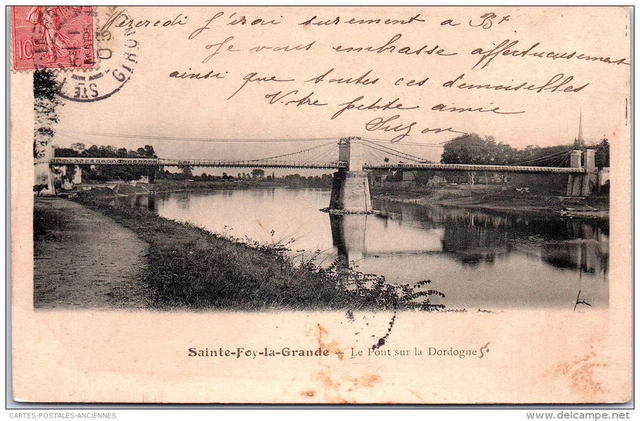 Mercredi j'irai surement a Bx
Je vous embrasse affectueusement
ainsi que toutes ces demoiselles
Votre petite amie
Suzon
10
STE
GIRON
Sainte-Foy-la-Grande - Le Pont sur la Dordogne
CARTES-POSTALES-ANCIENNES
www.delcampe.net